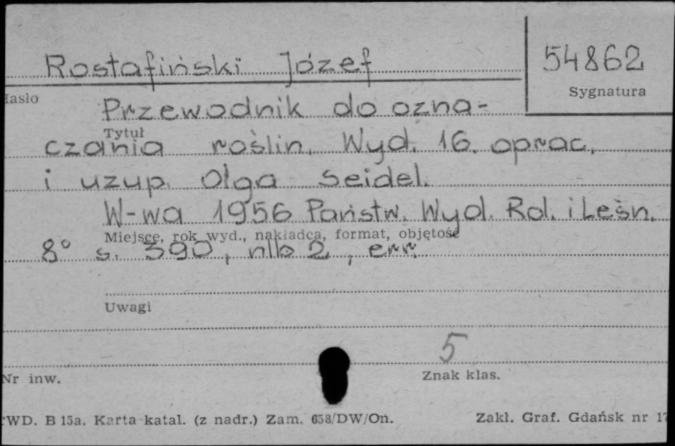 Rostafiński Józef
54862
Sygnatura
Hasło
Przewodnik do ozna-
Tytuł
czania roślin. Wyd. 16. oprac.
i uzup. Olga Seidel.
W-wa 1956 Państw. Wyd. Rol. i Leśn.
Miejsce, rok wyd., nakładca, format, objętość
8° s. 390, nlb 2, err.
Uwagi
5
Nr inw.
Znak klas.
WD. B 15a. Karta katal. (z nadr.) Zam. 658/DW/On.
Zakł. Graf. Gdańsk nr 17